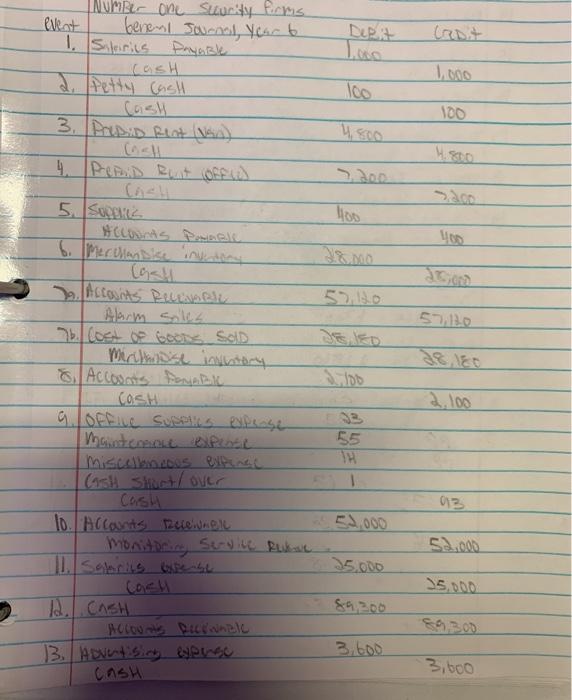 Number one Security firms
event General Journal, Year 6 Debit Credit
1. Salaries Payable 1,000
Cash 1,000
2. Petty Cash 100
Cash 100
3. Prepaid Rent (Van) 4,800
Cash 4,800
4. Prepaid Rent (office) 7,200
Cash 7,200
5. Supplies 400
Accounts Payable 400
6. Merchandise inventory 28,000
Cash 28,000
7a. Accounts Receivable 57,120
Alarm sales 57,120
7b. Cost of Goods Sold 28,180
Merchandise inventory 28,180
8. Accounts Payable 2,100
Cash 2,100
9. Office Supplies expense 23
Maintenance expense 55
Miscellaneous expense 14
Cash Short/over 1
Cash 93
10. Accounts Receivable 52,000
Monitoring Service 52,000
11. Salaries expense 25,000
Cash 25,000
12. Cash 89,300
Accounts Receivable 89,300
13. Advertising expense 3,600
Cash 3,600